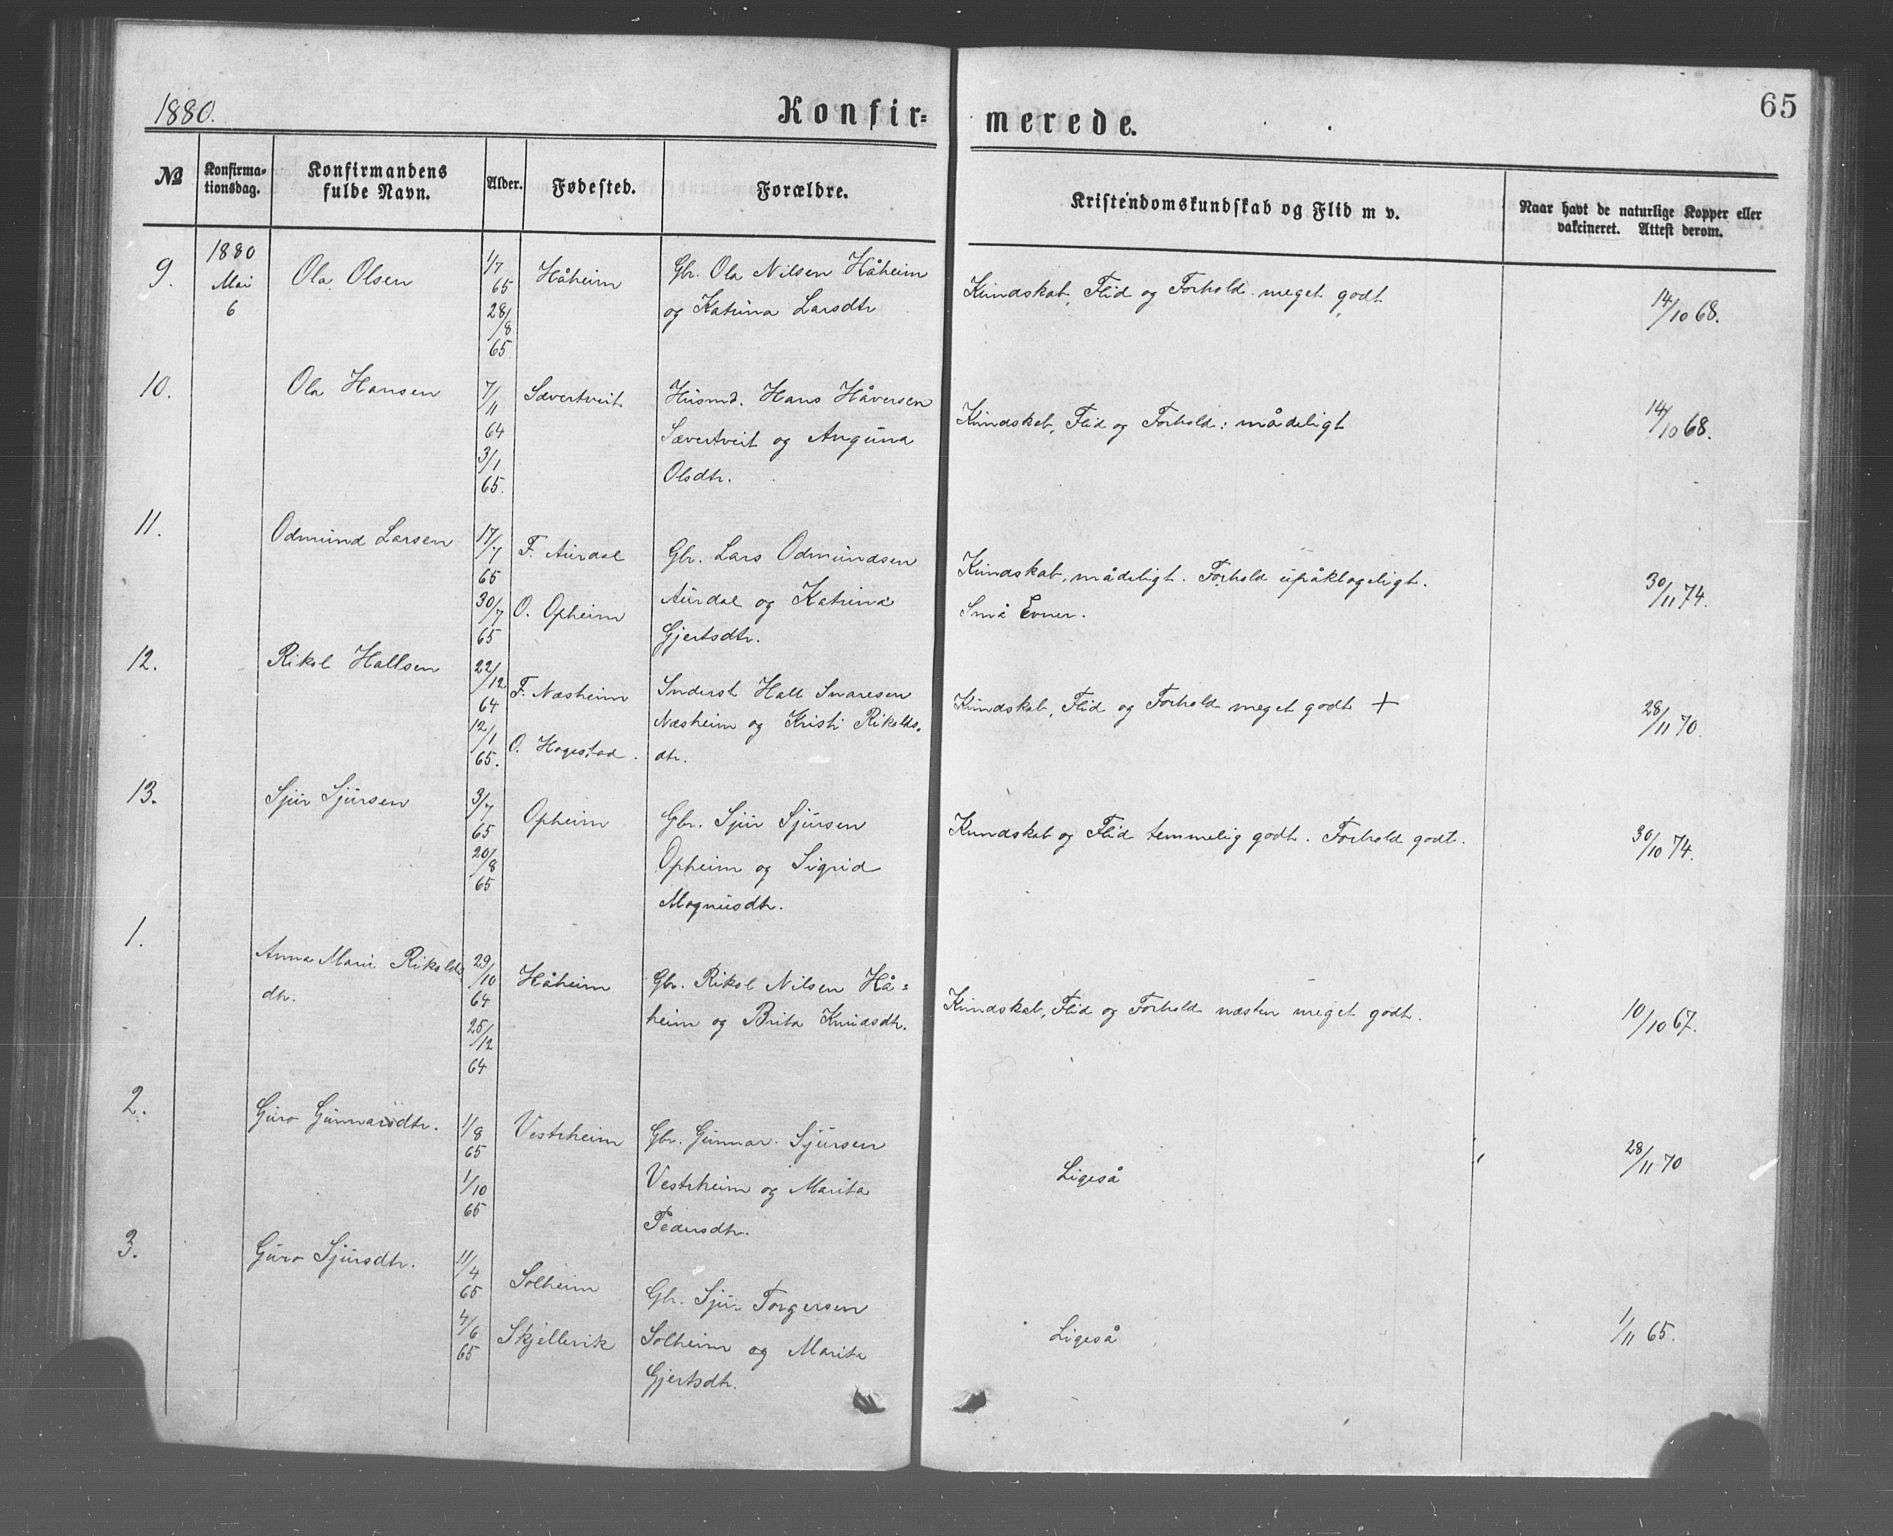 1880.
Konfir=
merede.
65
№
Konfirma-
tionsdag.
Konfirmandens
fulde Navn.
Alder.
Fødested.
Forældre.
Kristendomskundskab og Flid m v.
Naar havt de naturlige Kopper eller
vakcineret. Attest derom.
9.
1880
Mai
6
Ola Olsen
1/7
65
28/8
65
Håheim
Gbr. Ola Nilsen Håheim
og Katrina Larsdtr
Kundskab, Flid og Forhold meget godt
14/10 68.
10.
Ola Hansen
7/11
64
3/1
65.
Sævertveit
Husmd. Hans Håversen
Sævertveit og Anguna
Olsdtr.
Kundskab, Flid og Forhold: mådeligt
14/10 68.
11.
Odmund Larsen
17/7
65
30/7
65
F. Aurdal
O. Opheim
Gbr. Lars Odmundsen
Aurdal og Katrina
Gjertsdtr.
Kundskab, mådeligt. Forhold upåklageligt.
Små Evner.
30/11 74.
12.
Rikol Hallsen
22/12
64
12/1
65.
F. Næsheim
O. Hagestad.
Inderst Hall Snaresen
Næsheim og Kristi Rikolds-
dtr.
Kundskab, Flid og Forhold meget godt +
28/11 70.
13.
Sjur Sjursen
3/7
65
20/8
65
Opheim
Gbr. Sjur Sjursen
Opheim og Sigrid
Magnusdtr.
Kundskab og Flid temmelig godt. Forhold godt.
30/10 74.
1.
Anna Mari Rikolds
dtr.
29/10
64
25/12
64
Håheim
Gbr. Rikol Nilsen Hå=
heim og Brita Knudsdtr.
Kundskab, Flid og Forhold næsten meget godt.
10/10 67.
2.
Guro Gunnarsdtr.
1/8
65
1/10
65
Vestrheim
Gbr. Gunnar Sjursen
Vestrheim og Marita
Pedersdtr.
Ligeså
28/11 70
3.
Guro Sjursdtr.
11/4
65
4/6
65
Solheim
Skjellevik
Gbr. Sjur Torgersen
Solheim og Marita
Gjertsdtr.
Ligeså
1/11 65.